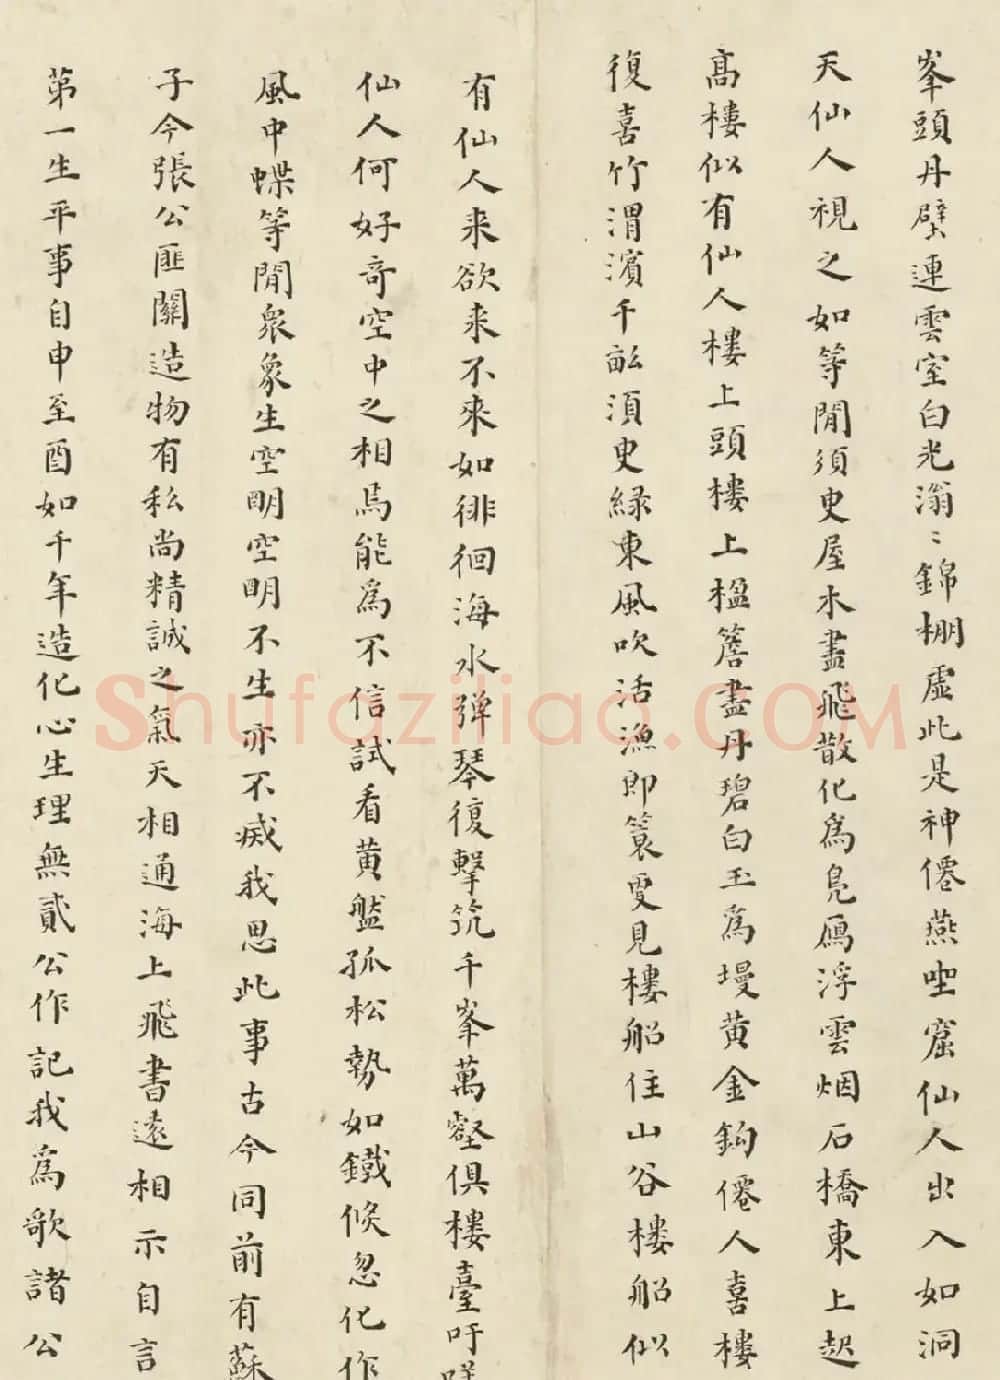 峯頭丹壁連雲室白光滃〻錦棚虛此是神僊燕坐窟仙人出入如洞
天仙人視之如等閒須臾屋木盡飛散化為鳧鴈浮雲烟石橋東上起
高樓似有仙人樓上頭樓上楹簷盡丹碧白玉為墁黃金鉤僊人喜樓
復喜竹渭濱千畝須臾綠東風吹活漁即簑叟見樓船住山谷樓船似
有仙人来欲来不來如徘徊海水弹琴復擊筑千峯萬壑俱樓臺吁
仙人何好奇空中之相焉能為不信試看黃盤孤松勢如鐵倏忽化作
風中蝶等閒衆象生空明空明不生亦不滅我思此事古今同前有蘇
子今張公匪關造物有私尚精誠之氣天相通海上飛書遠相示自言
第一生平事自申至酉如千年造化心生理無貳公作記我為歌諸公
Shufaziliao.COM